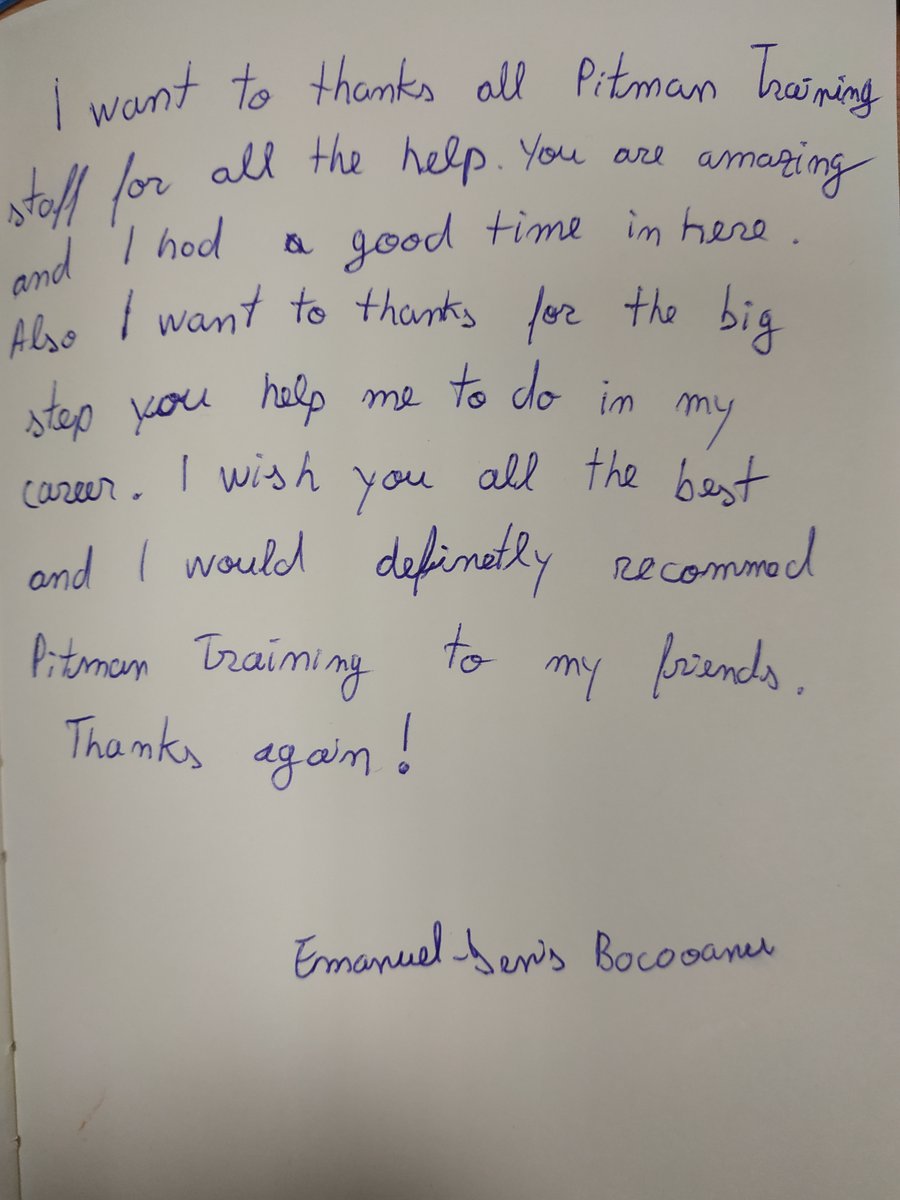 I want to thanks all Pitman Training
staff for all the help. You are amazing
and I had a good time in here.
Also I want to thanks for the big
step you help me to do in my
career. I wish you all the best
and I would definetly recommed
Pitman Training to my friends.
Thanks again!
Emanuel-Denis